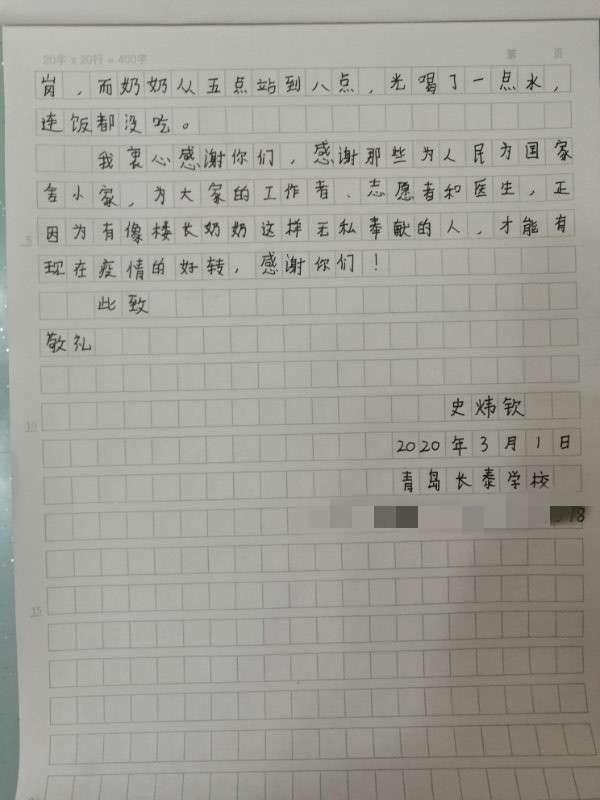 20字 x 20行 = 400字 第 页
岗，而奶奶从五点站到八点，光喝了一点水，
连饭都没吃。
我衷心感谢你们，感谢那些为人民为国家
舍小家，为大家的工作者、志愿者和医生，正
因为有像楼长奶奶这样无私奉献的人，才能有
5
现在疫情的好转，感谢你们！
此致
敬礼
史炜钦
10
2020年3月1日
青岛长泰学校
18
15